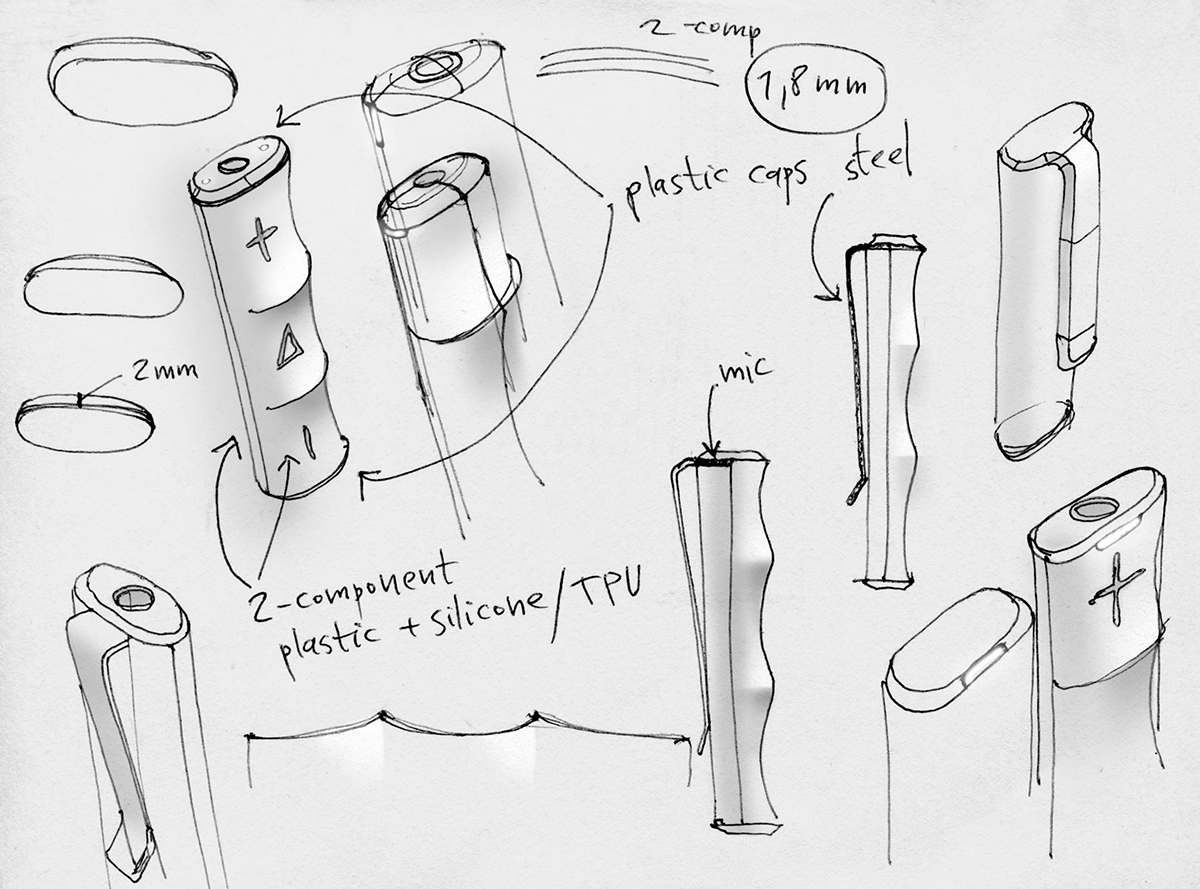 2-comp
1,8 mm
plastic caps
steel
2mm
mic
2-component
plastic + silicone/TPU